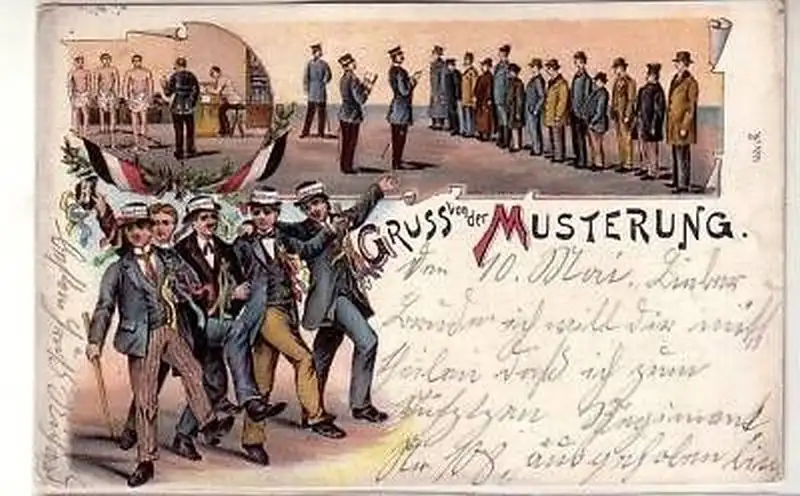 GRUSS von der MUSTERUNG.
Den 10. Mai. Lieber
Bruder ich will dir mitt
theilen daß ich zum
Schützen Regiment
Nr. 108, ausgehoben bin